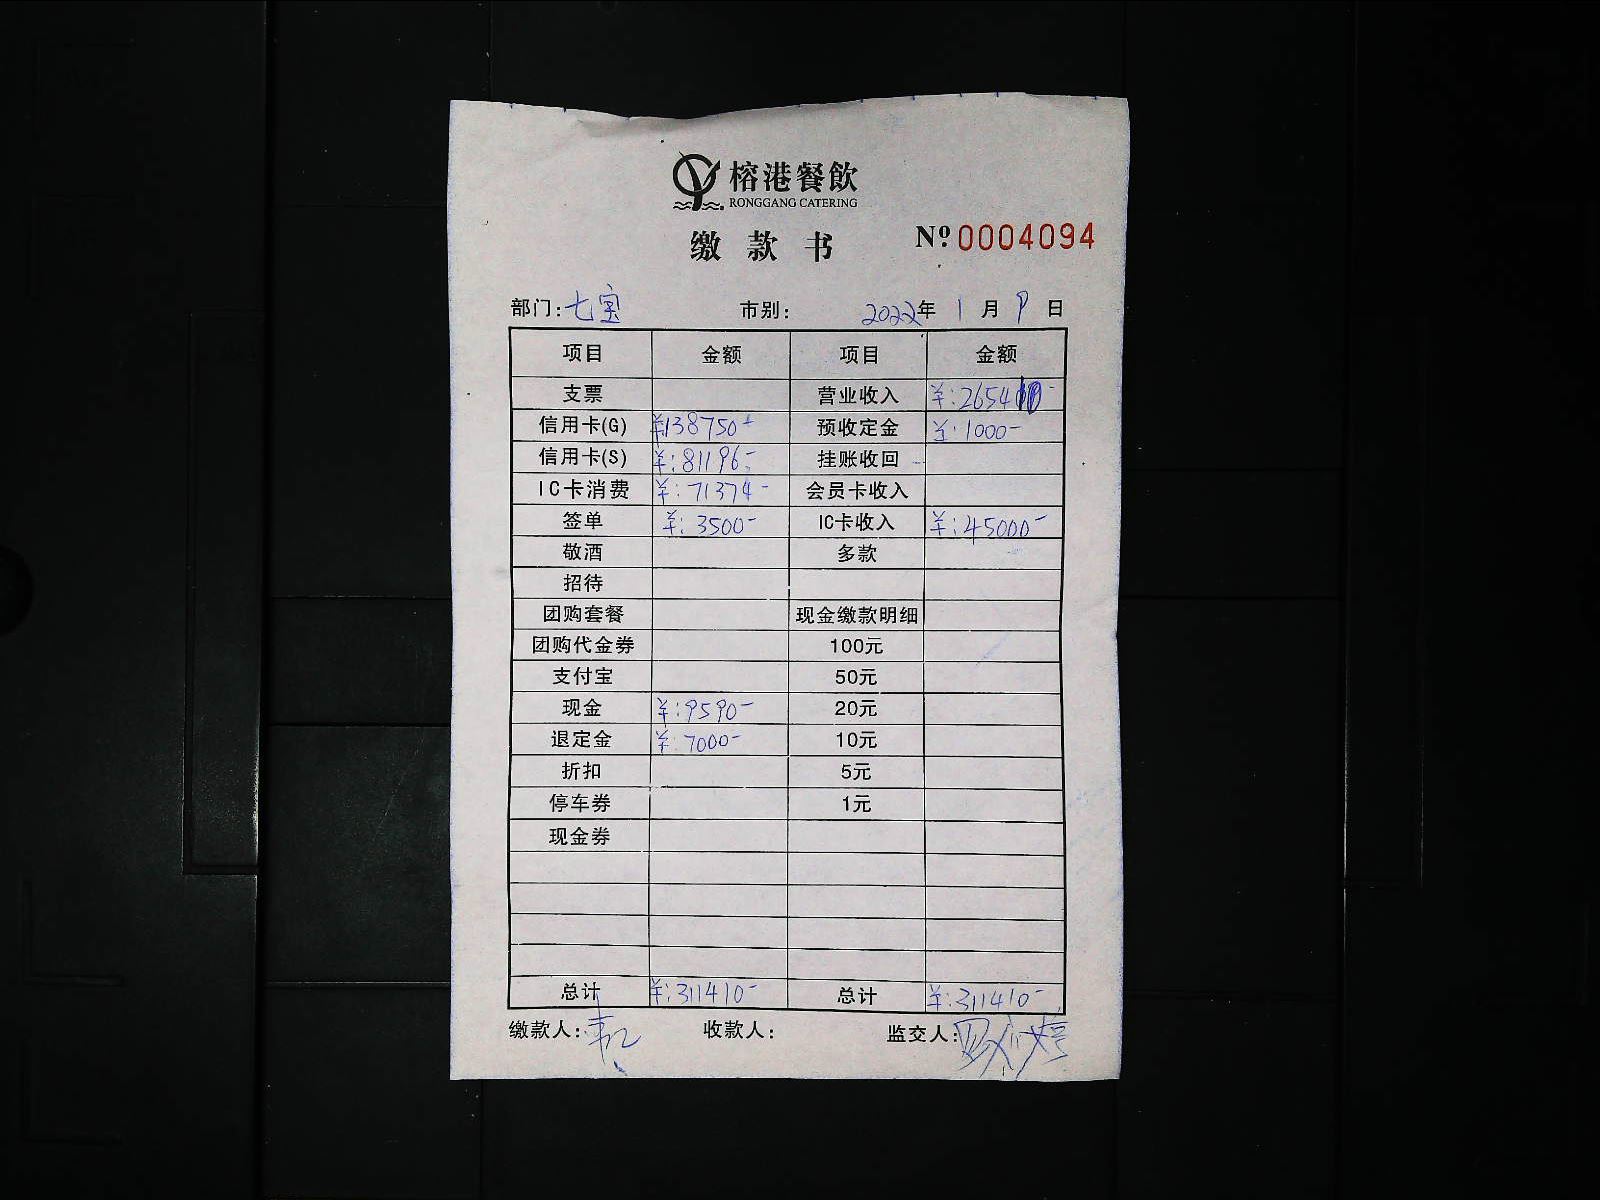 榕港餐飲
RONGGANG CATERING
缴款书 Nº 0004094
部门:七宝 市别: 2022年 1月 9日
项目 金额 项目 金额
支票 营业收入 ¥:265410-
信用卡(G) ¥138750- 预收定金 ¥:1000-
信用卡(S) ¥:81196- 挂账收回
IC卡消费 ¥:71374- 会员卡收入
签单 ¥:3500- IC卡收入 ¥:45000-
敬酒 多款
招待
团购套餐 现金缴款明细
团购代金券 100元
支付宝 50元
现金 ¥:9590- 20元
退定金 ¥:7000- 10元
折扣 5元
停车券 1元
现金券
总计 ¥:311410- 总计 ¥:311410-
缴款人: 收款人: 监交人: